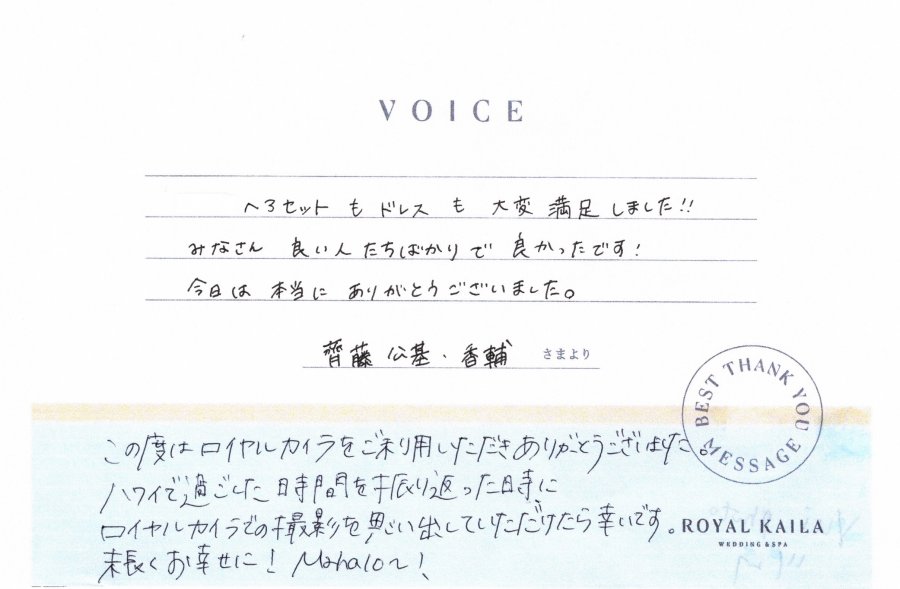 VOICE
ヘアセットもドレスも大変満足しました!!
みなさん良い人たちばかりで良かったです!
今日は本当にありがとうございました。
齊藤公基・香輔 さまより
BEST THANK YOU MESSAGE
この度はロイヤルカイラをご利用いただきありがとうございました。
ハワイで過ごした時間を振り返った時に
ロイヤルカイラでの撮影を思い出していただけたら幸いです。
末長くお幸せに! Mahalo~!
ROYAL KAILA
WEDDING & SPA